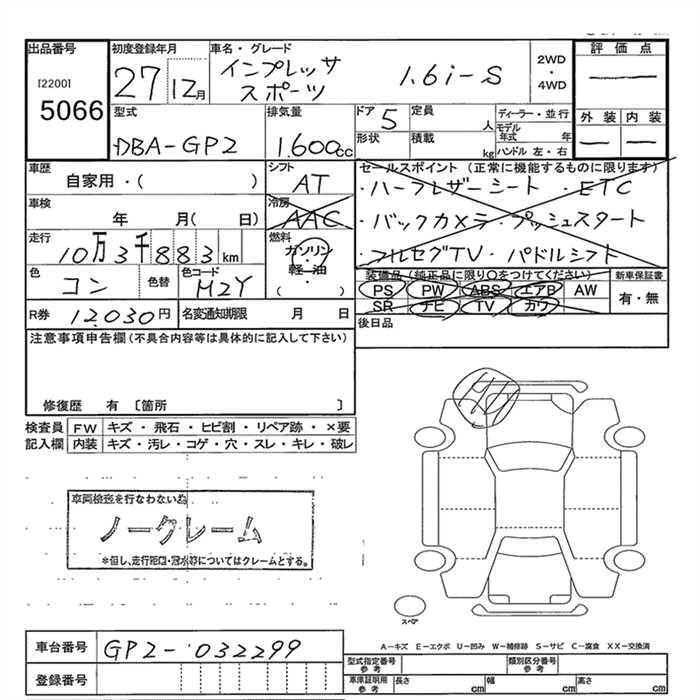 出品番号
[2200]
5066
初度登録年月
27 12月
車名・グレード
インプレッサ
スポーツ
1.6i-S
2WD
・
4WD
評価点
外装 内装
型式
DBA-GP2
排気量
1.600cc
ドア 5
形状
定員 人
積載 kg
ディーラー・並行
モデル年式 年
ハンドル 左・右
車歴
自家用・( )
シフト
AT
セールスポイント (正常に機能するものに限ります)
・ハーフレザーシート ・ETC
・バックカメラ・プッシュスタート
・フルセグTV・パドルシフト
車検
年 月( 日)
冷房
AAC
走行
10万3千883km
燃料
ガソリン
・
軽・油
( )
色
コン
色替
色コード
M2Y
装備品(純正品に限り○をつけてください)
PS PW ABS エアB AW
SR ナビ TV カワ
新車保証書
有・無
R券 12,030円
名変通知期限 月 日
後日品
注意事項申告欄(不具合内容等は具体的に記入して下さい)
修復歴 有 〔箇所 〕
検査員
記入欄
FW キズ・飛石・ヒビ割・リペア跡・×要
内装 キズ・汚レ・コゲ・穴・スレ・キレ・破レ
車両検査を行なわない為
ノークレーム
*但し、走行距離・冠水等についてはクレームとする。
スペア
A-キズ E-エクボ U-凹み W-補修跡 S-サビ C-腐食 XX-交換済
車台番号
GP2-032299
登録番号
型式指定番号
参考
類別区分番号
参考
車庫証明用
参考
長さ cm
幅 cm
高さ cm